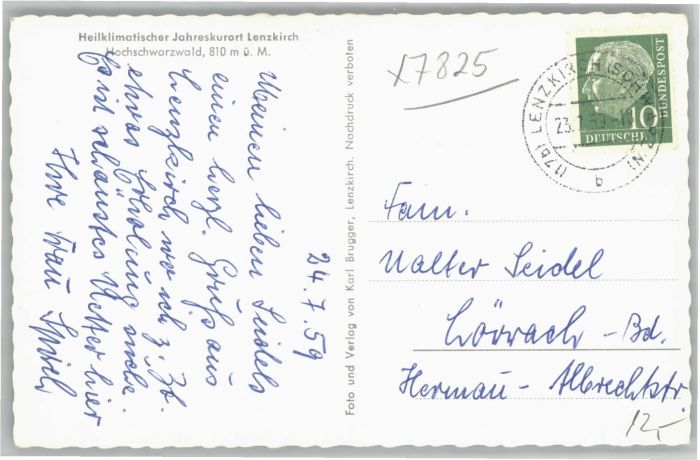 Heilklimatischer Jahreskurort Lenzkirch
Hochschwarzwald, 810 m ü. M.
Meinen lieben Seidels
einen herzl. Gruß aus
Lenzkirch wo ich z. Zt.
etwas Erholung suche.
Es ist schönstes Wetter hier
Ihre Frau
24.7.59
Foto und Verlag von Karl Brugger, Lenzkirch. Nachdruck verboten
x7825
(17b) LENZKIRCH (SCHWARZW)
23.7.59
b
10
DEUTSCHE
BUNDESPOST
Fam.
Walter Seidel
Lörrach-Bd.
Hermann-Albrechtstr.
12,-